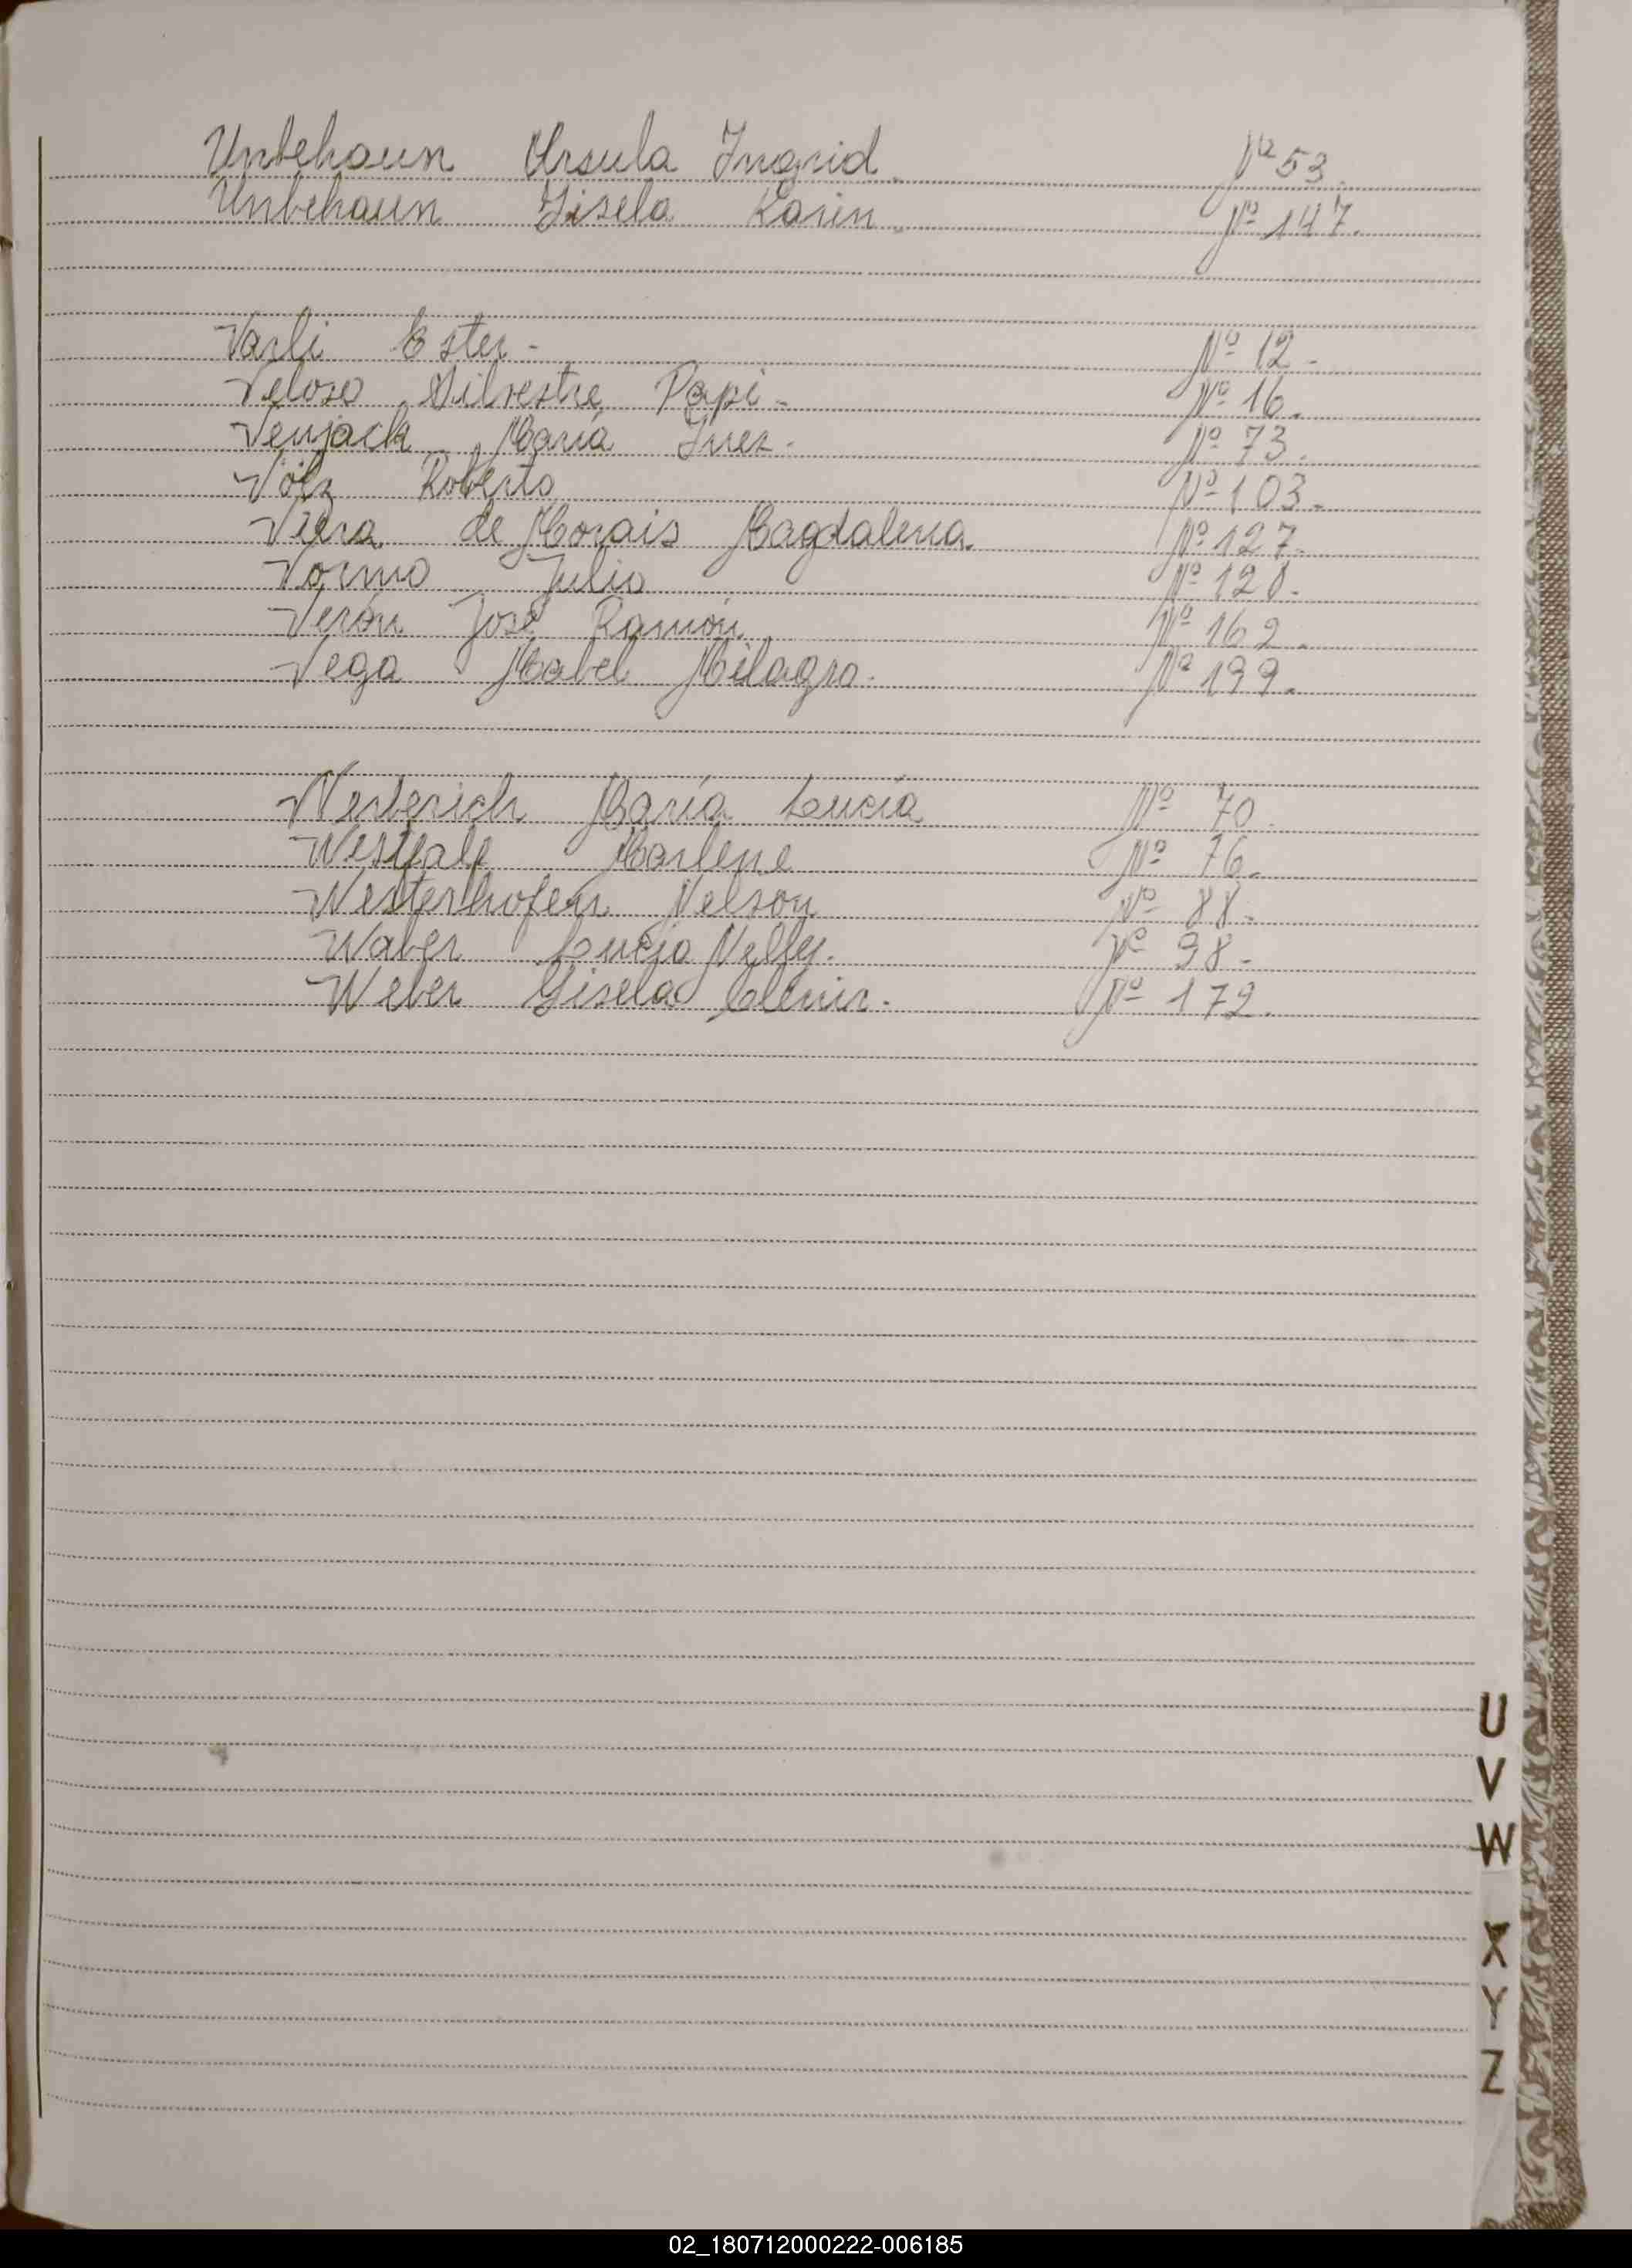 Unbehaun Ursula Ingrid. Nº 53.
Unbehaun Gisela Karin. Nº 147.
Varli Ester - Nº 12 -
Veloso Silvestre Papi - Nº 16.
Venjack Maria Inez - Nº 73.
Völz Roberto Nº 103 -
Viera de Morais Magdalena. Nº 127.
Vormo Julio Nº 128.
Verón José Ramón Nº 162.
Vega Mabel Milagra. Nº 199.
Werberich María Lucía Nº 70.
Westfale Marlene Nº 76.
Westerhofen Nelson Nº 88.
Waber Lucia Nelly. Nº 98 -
Weber Gisela Clenir. Nº 172.
U
V
W
X
Y
Z
02_180712000222-006185